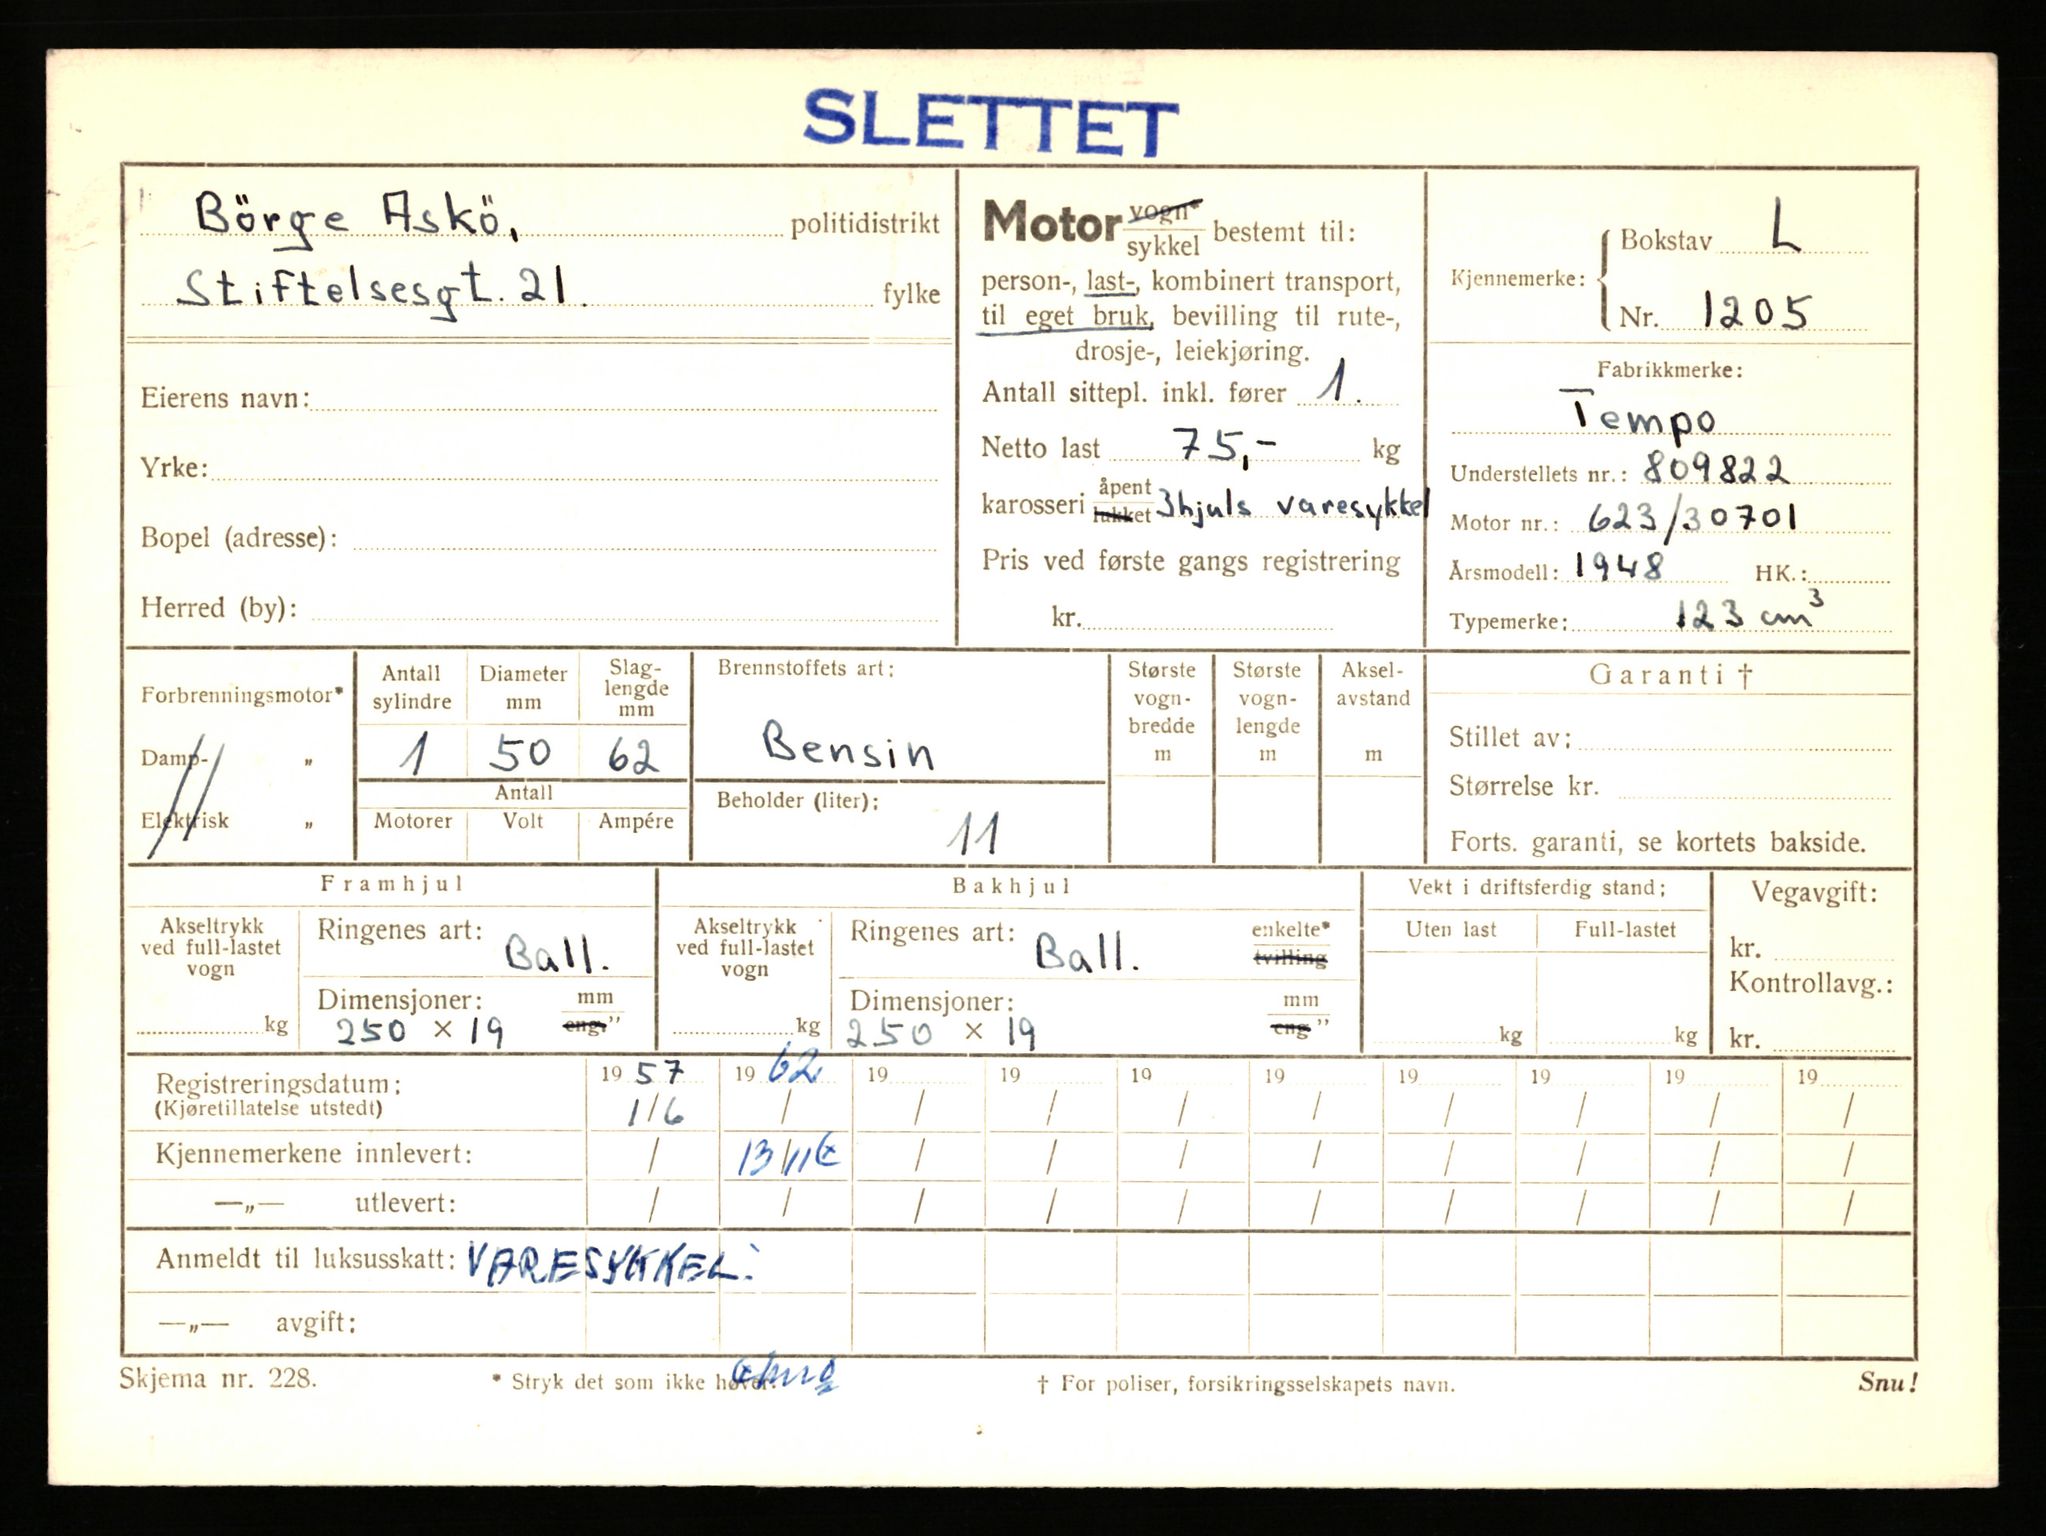 SLETTET
Börge Askö, politidistrikt
Stiftelsesgt. 21. fylke
Eierens navn:
Yrke:
Bopel (adresse):
Herred (by):
Motor vogn* sykkel bestemt til:
person-, last-, kombinert transport,
til eget bruk, bevilling til rute-,
drosje-, leiekjøring.
Antall sittepl. inkl. fører 1.
Netto last 75,- kg
karosseri åpent lukket 3hjuls varesykkel
Pris ved første gangs registrering
kr.
Kjennemerke: Bokstav L
Nr. 1205
Fabrikkmerke:
Tempo
Understellets nr.: 809822
Motor nr.: 623/30701
Årsmodell: 1948 HK.:
Typemerke: 123 cm³
Forbrenningsmotor*
Damp- "
Elektrisk "
Antall sylindre
Diameter mm
Slag-lengde mm
1 50 62
Antall
Motorer Volt Ampére
Brennstoffets art:
Bensin
Beholder (liter):
11
Største vogn-bredde m
Største vogn-lengde m
Aksel-avstand m
Garanti †
Stillet av:
Størrelse kr.
Forts. garanti, se kortets bakside.
Framhjul
Akseltrykk ved full-lastet vogn
kg
Ringenes art: Ball.
Dimensjoner: mm eng."
250 × 19
Bakhjul
Akseltrykk ved full-lastet vogn
kg
Ringenes art: Ball. enkelte* tvilling
Dimensjoner: mm eng"
250 × 19
Vekt i driftsferdig stand:
Uten last Full-lastet
kg kg
Vegavgift:
kr.
Kontrollavg.:
kr.
Registreringsdatum: 19 57 19 62 19 19 19 19 19 19 19 19
(Kjøretillatelse utstedt) 1/6 / / / / / / / / /
Kjennemerkene innlevert: / 13/11 / / / / / / / /
—„— utlevert: / / / / / / / / / /
Anmeldt til luksusskatt: VARESYKKEL.
—„— avgift:
Skjema nr. 228.
* Stryk det som ikke høver.
† For poliser, forsikringsselskapets navn.
Snu!